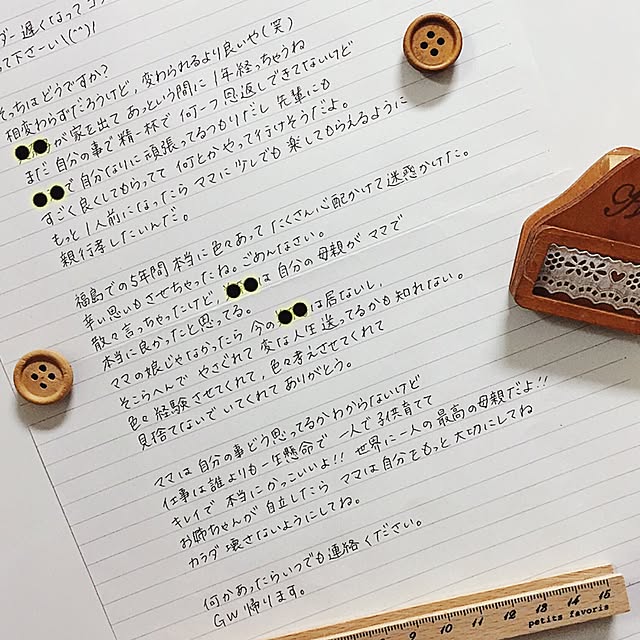 ダー遅くなって
って下さーい\(^^)/
そっちはどうですか?
相変わらずだろうけど、変わられるより良いや(笑)
●●が家を出てあっという間に1年経っちゃうね
まだ自分の事で精一杯で何一つ恩返しできてないけど
●●で自分なりに頑張ってるつもりだし先輩にも
すごく良くしてもらってて何とかやって行けそうだよ。
もっと1人前になったらママに少しでも楽してもらえるように
親行孝したいんだ。
福島での5年間本当に色々あってたくさん心配かけて迷惑かけた。
辛い思いもさせちゃったね。ごめんなさい。
散々言っちゃったけど、●●は自分の母親がママで
本当に良かったと思ってる。
ママの娘じゃなかったら今の●●は居ないし、
そこらへんでやさぐれて変な人生送ってるかも知れない。
色々経験させてくれて、色々考えさせてくれて
見捨てないでいてくれてありがとう。
ママは自分の事どう思ってるかわからないけど
仕事は誰よりも一生懸命で一人で子供育てて
キレイで本当にかっこいいよ!!世界に一人の最高の母親だよ!!
お姉ちゃんが自立したらママは自分をもっと大切にしてね
カラダ壊さないようにしてね。
何かあったらいつでも連絡ください。
GW帰ります。
9 10 11 12 13 14 15
petits favoris